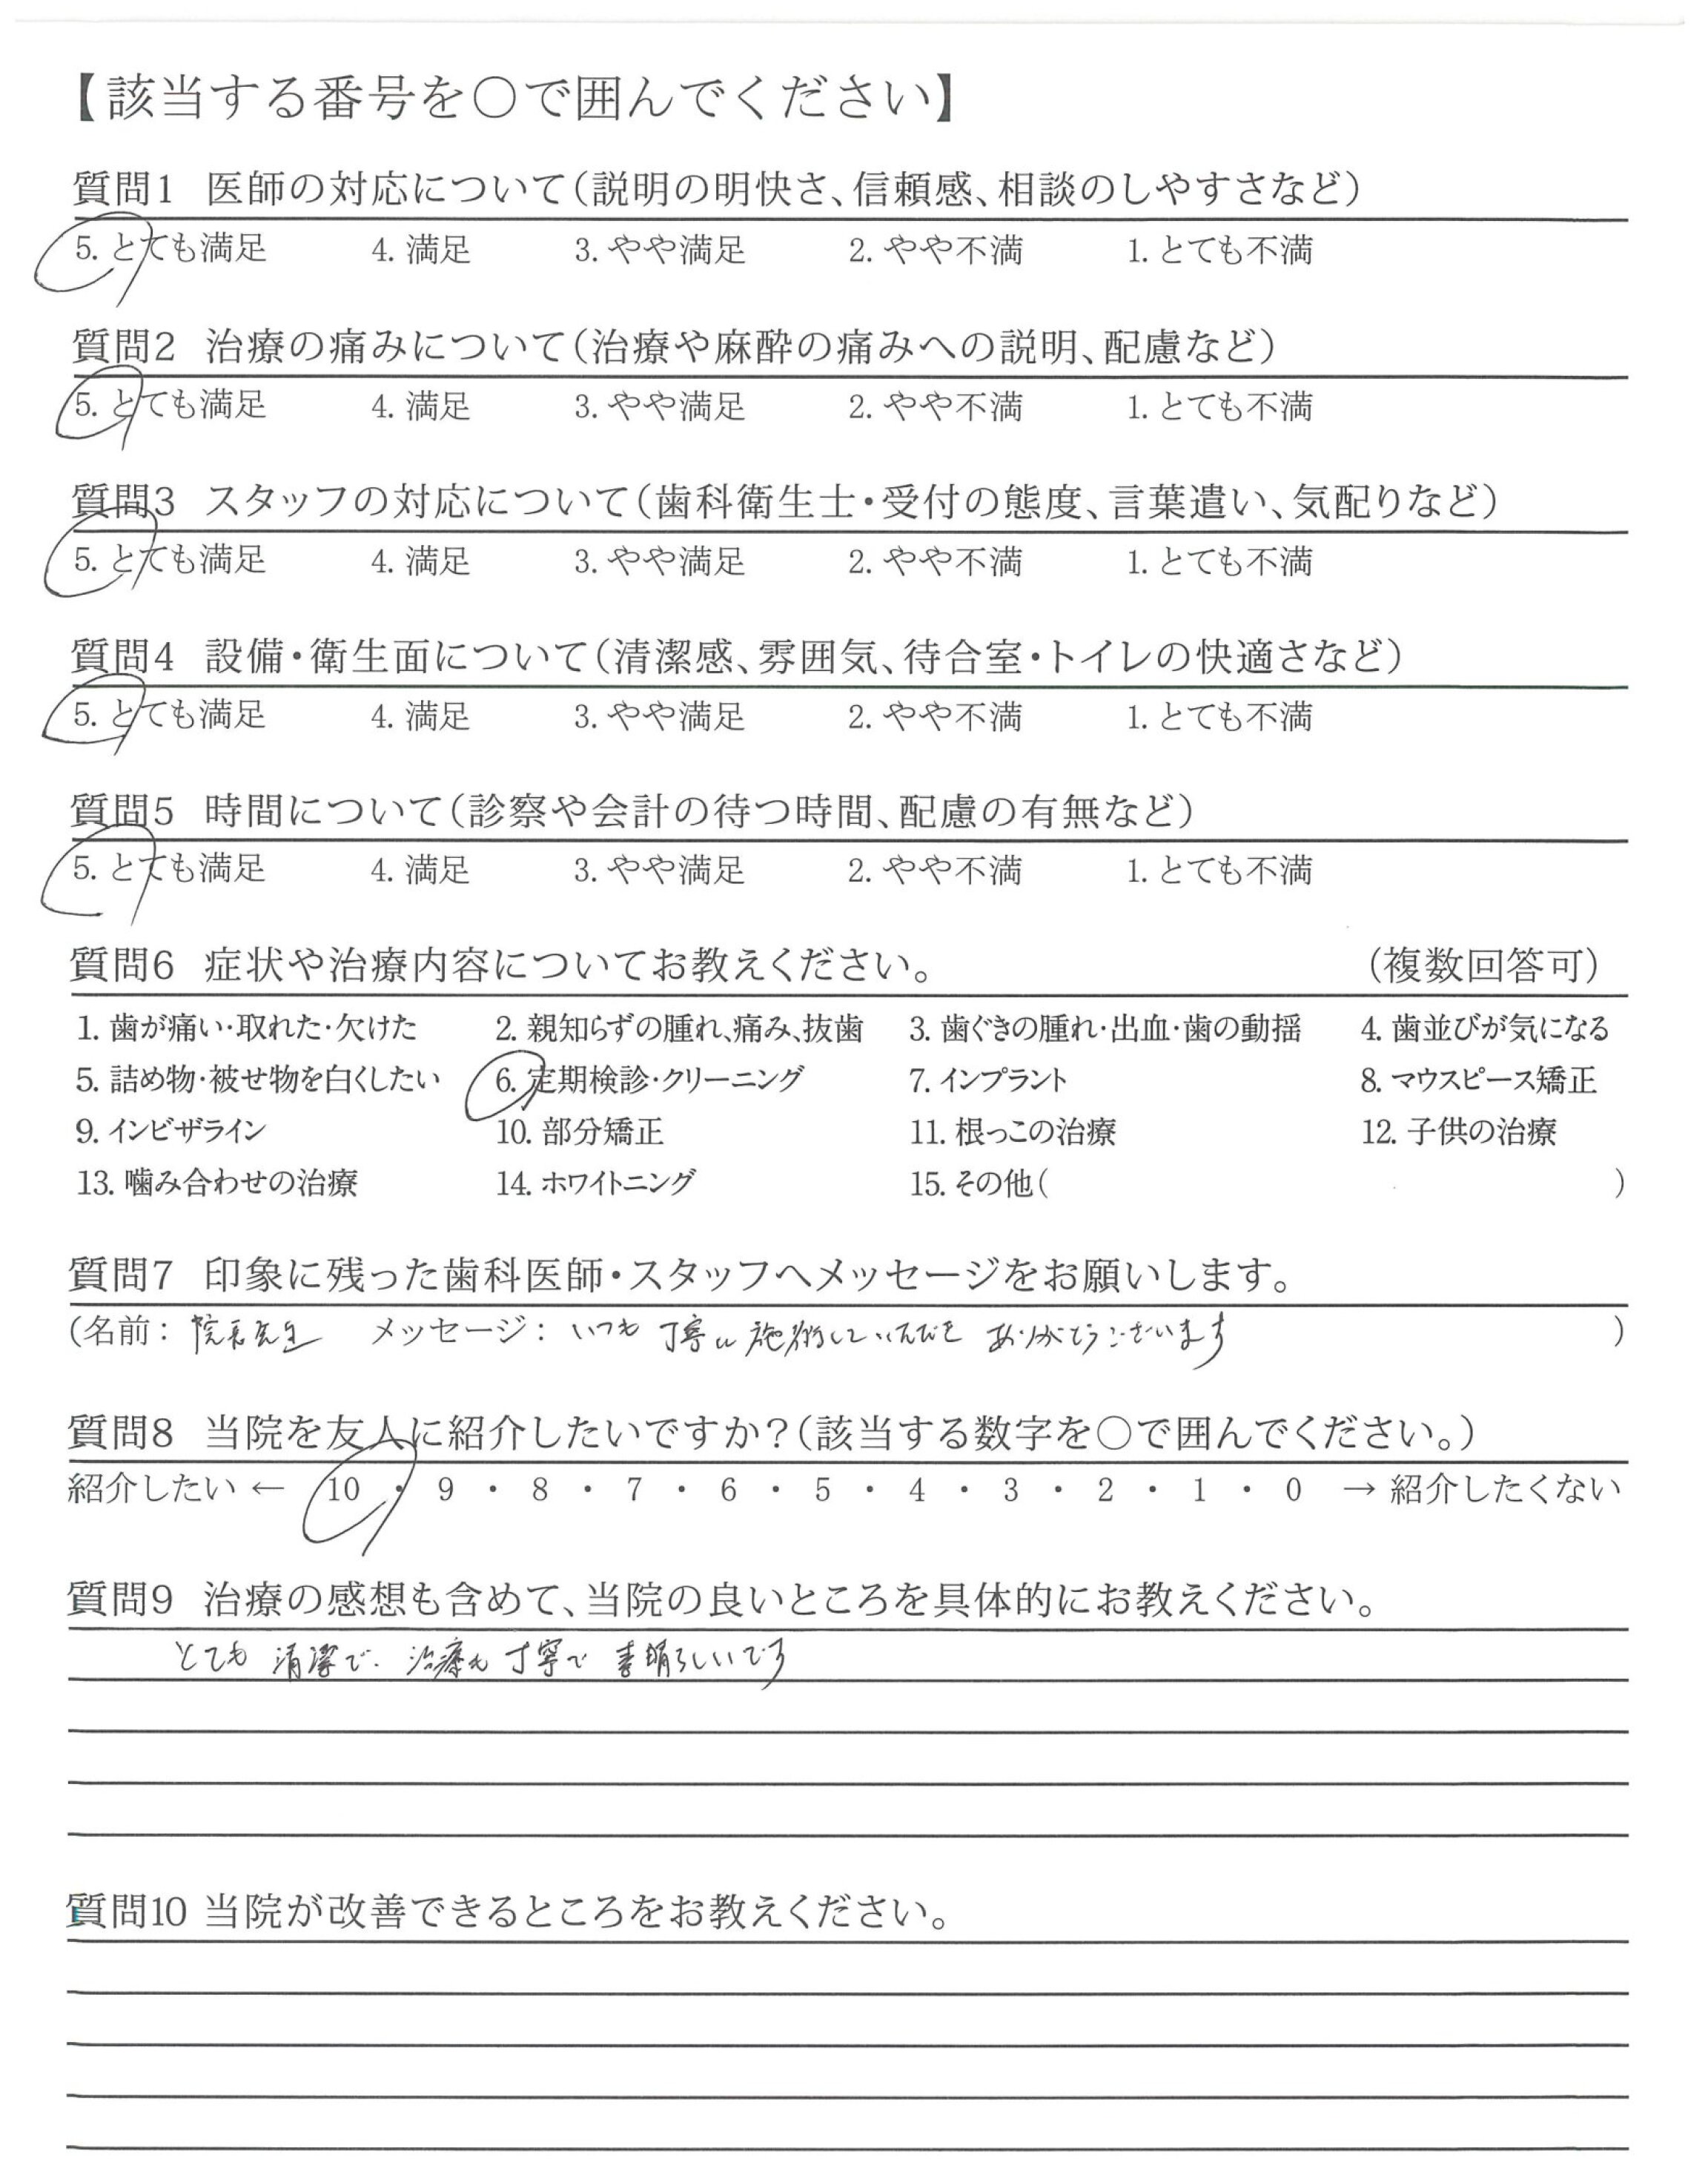 【該当する番号を○で囲んでください】
質問1 医師の対応について(説明の明快さ、信頼感、相談のしやすさなど)
5. とても満足 4. 満足 3. やや満足 2. やや不満 1. とても不満
質問2 治療の痛みについて(治療や麻酔の痛みへの説明、配慮など)
5. とても満足 4. 満足 3. やや満足 2. やや不満 1. とても不満
質問3 スタッフの対応について(歯科衛生士・受付の態度、言葉遣い、気配りなど)
5. とても満足 4. 満足 3. やや満足 2. やや不満 1. とても不満
質問4 設備・衛生面について(清潔感、雰囲気、待合室・トイレの快適さなど)
5. とても満足 4. 満足 3. やや満足 2. やや不満 1. とても不満
質問5 時間について(診察や会計の待つ時間、配慮の有無など)
5. とても満足 4. 満足 3. やや満足 2. やや不満 1. とても不満
質問6 症状や治療内容についてお教えください。 (複数回答可)
1. 歯が痛い・取れた・欠けた 2. 親知らずの腫れ、痛み、抜歯 3. 歯ぐきの腫れ・出血・歯の動揺 4. 歯並びが気になる
5. 詰め物・被せ物を白くしたい 6. 定期検診・クリーニング 7. インプラント 8. マウスピース矯正
9. インビザライン 10. 部分矯正 11. 根っこの治療 12. 子供の治療
13. 噛み合わせの治療 14. ホワイトニング 15. その他( )
質問7 印象に残った歯科医師・スタッフへメッセージをお願いします。
(名前: 院長先生 メッセージ: いつも 丁寧に 施術して いただき ありがとうございます )
質問8 当院を友人に紹介したいですか?(該当する数字を○で囲んでください。)
紹介したい ← 10 ・ 9 ・ 8 ・ 7 ・ 6 ・ 5 ・ 4 ・ 3 ・ 2 ・ 1 ・ 0 → 紹介したくない
質問9 治療の感想も含めて、当院の良いところを具体的にお教えください。
とても 清潔で、治療も 丁寧で 素晴らしいです
質問10 当院が改善できるところをお教えください。